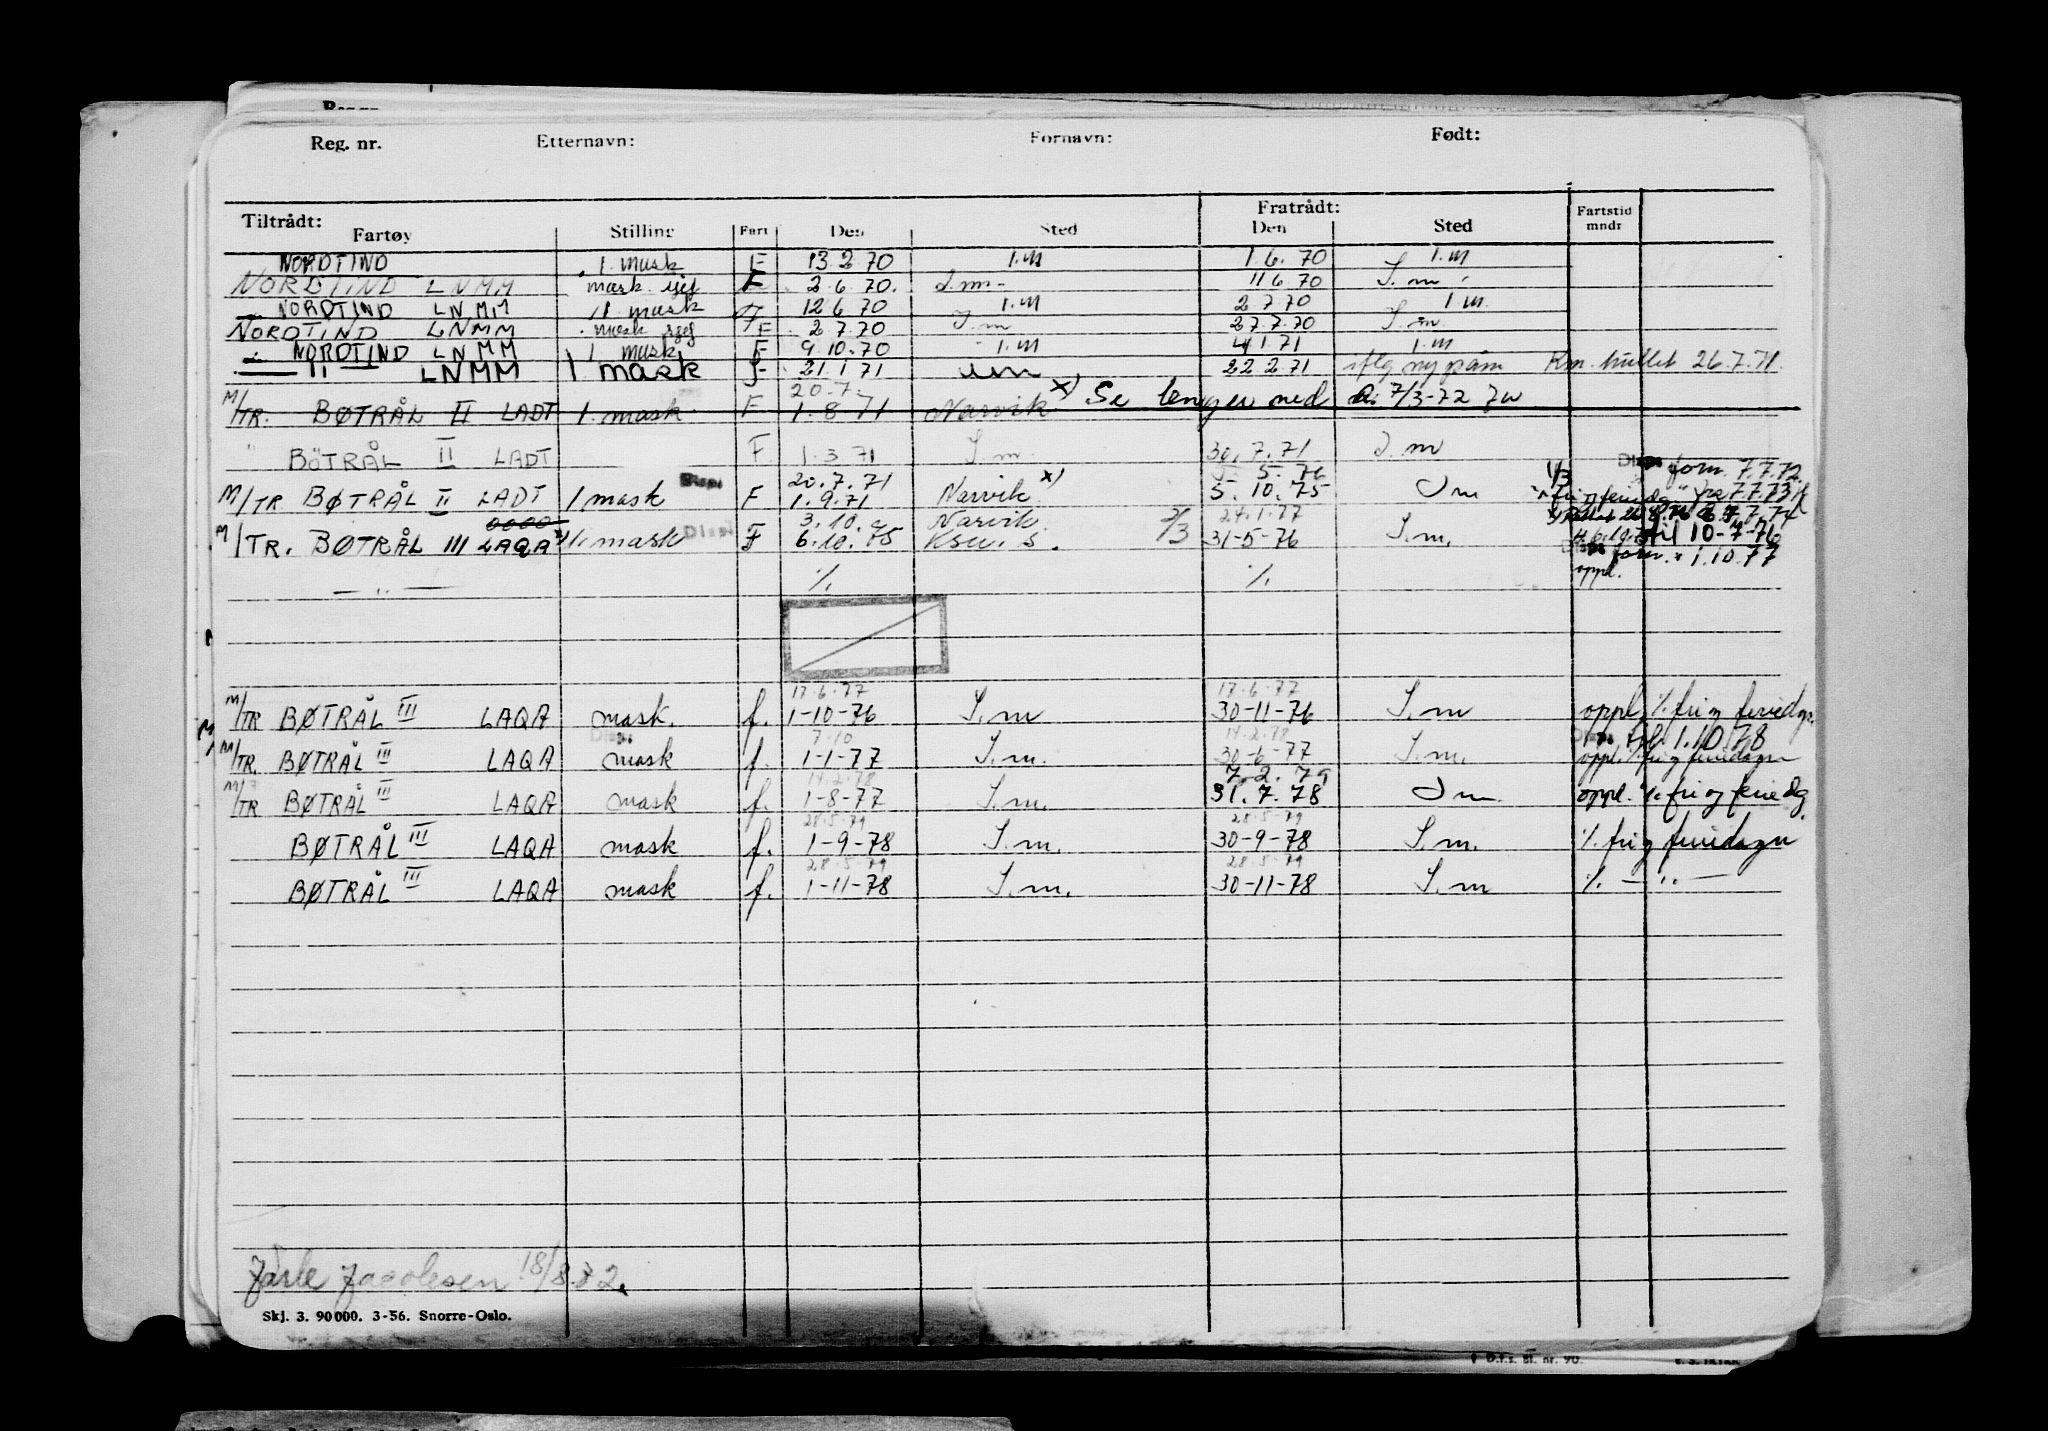 Reg. nr. Etternavn: Fornavn: Født:
Tiltrådt: Fratrådt: Fartstid mndr
Fartøy Stilling Fart Den Sted Den Sted
NORDTIND 1. mask F 13.2.70 I.M 1.6.70 I.M
NORDTIND LNMM mask. sjef F 2.6.70. I.m. 11.6.70 I.m.
NORDTIND LNMM 1. mask F 12.6.70 I.M 2.7.70 I.M.
NORDTIND LNMM mask sjef F 2.7.70 I.m 27.7.70 I.m.
NORDTIND LNMM 1. mask F 9.10.70 I.M 4.1.71 I.M
— " — LNMM 1 mask F 21.1.71 um 22.2.71 iflg ny påm 26.7.71.
20.7.
M/TR. BØTRÅL II LADT 1. mask F 1.8.71 Narvik x) Se lenger ned 7/3-72
" BÖTRÅL II LADT F 1.3.71 I.m. 30.7.71 I.m
20.7.71 5.76 1/3 form. 7.7.72.
M/TR BØTRÅL II LADT 1 mask F 1.9.71 Narvik x) 5.10.75 I m 7.7.73
3.10. Narvik 2/3 24.1.77
M/TR. BØTRÅL III LAQA 1. mask F 6.10.75 Ksu. S. 31-5-76 I.m. til 10-7-76
form. 1.10.77
— " — % % oppl.
17.6.77 17.6.77
M/TR BØTRÅL III LAQA mask. f. 1-10-76 I.m 30-11-76 I.m oppl. % fri og feriedgr.
7.10 14.2.78 1.10.78
M/TR. BØTRÅL III LAQA mask f. 1-1-77 I.m. 30-6-77 I.m. oppl. % fri og feriedagr
14.2.78 7.2.79
M/TR BØTRÅL III LAQA mask f. 1-8-77 I.m. 31.7.78 I m. oppl. % fri og feriedg.
28.5.79 28.5.79
BØTRÅL III LAQA mask f. 1-9-78 I.m. 30-9-78 I.m. % fri og feriedagr
28.5.79 28.5.79
BØTRÅL III LAQA mask f. 1-11-78 I.m. 30-11-78 I.m % — " —
Jarle Jacobsen 18/8.82.
Skj. 3. 90000. 3-56. Snorre-Oslo.